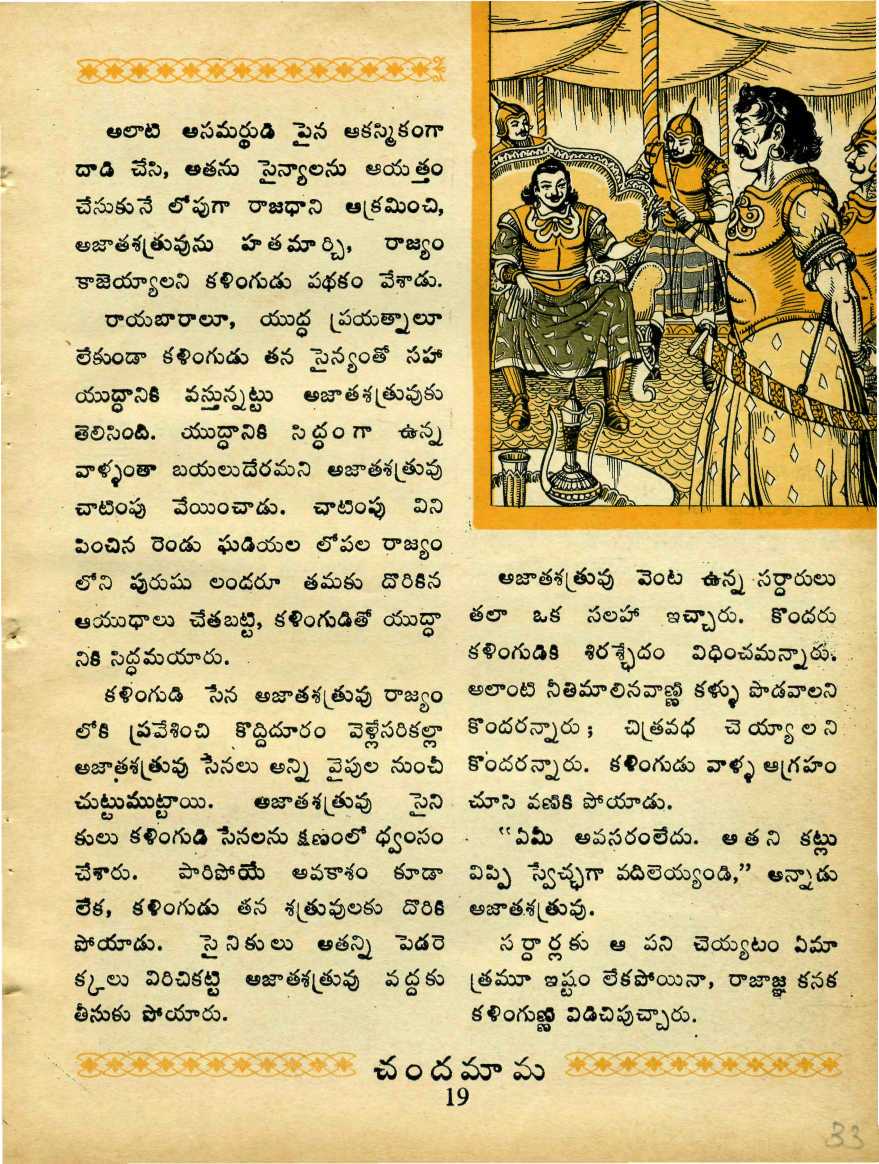 అలాటి అసమర్థుడి పైన ఆకస్మికంగా
దాడి చేసి, అతను సైన్యాలను ఆయత్తం
చేసుకునే లోపుగా రాజధాని ఆక్రమించి,
అజాతశత్రువును హతమార్చి, రాజ్యం
కాజెయ్యాలని కళింగుడు పథకం వేశాడు.
రాయబారాలూ, యుద్ధ ప్రయత్నాలూ
లేకుండా కళింగుడు తన సైన్యంతో సహా
యుద్ధానికి వస్తున్నట్టు అజాతశత్రువుకు
తెలిసింది. యుద్ధానికి సిద్ధంగా ఉన్న
వాళ్ళంతా బయలుదేరమని అజాతశత్రువు
చాటింపు వేయించాడు. చాటింపు విని
పించిన రెండు ఘడియల లోపల రాజ్యం
లోని పురుషు లందరూ తమకు దొరికిన
ఆయుధాలు చేతబట్టి, కళింగుడితో యుద్ధా
నికి సిద్ధమయారు.
కళింగుడి సేన అజాతశత్రువు రాజ్యం
లోకి ప్రవేశించి కొద్దిదూరం వెళ్లేసరికల్లా
అజాతశత్రువు సేనలు అన్ని వైపుల నుంచీ
చుట్టుముట్టాయి. అజాతశత్రువు సైని
కులు కళింగుడి సేనలను క్షణంలో ధ్వంసం
చేశారు. పారిపోయే అవకాశం కూడా
లేక, కళింగుడు తన శత్రువులకు దొరికి
పోయాడు. సైనికులు అతన్ని పెడరె
క్కలు విరిచికట్టి అజాతశత్రువు వద్దకు
తీసుకు పోయారు.
అజాతశత్రువు వెంట ఉన్న సర్దారులు
తలా ఒక సలహా ఇచ్చారు. కొందరు
కళింగుడికి శిరశ్ఛేదం విధించమన్నారు.
అలాంటి నీతిమాలినవాణ్ణి కళ్ళు పొడవాలని
కొందరన్నారు; చిత్రవధ చెయ్యాలని
కొందరన్నారు. కళింగుడు వాళ్ళ ఆగ్రహం
చూసి వణికి పోయాడు.
"ఏమీ అవసరంలేదు. అతని కట్లు
విప్పి స్వేచ్ఛగా వదిలెయ్యండి," అన్నాడు
అజాతశత్రువు.
సర్దార్లకు ఆ పని చెయ్యటం ఏమా
త్రమూ ఇష్టం లేకపోయినా, రాజాజ్ఞ కనక
కళింగుణ్ణి విడిచిపుచ్చారు.
చందమామ
19
33